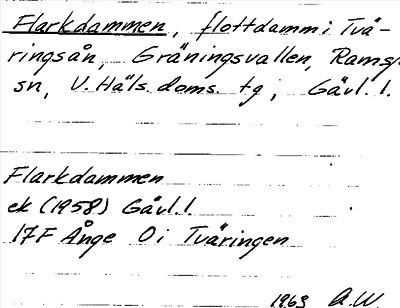 Flarkdammen, flottdamm i Tvä-
ringsån, Gräningsvallen, Ramsjö
sn, V. Häls. doms. tg, Gävl. l.
Flarkdammen
ek (1958) Gävl. l.
17F Ånge O i Tväringen
1963 A.W